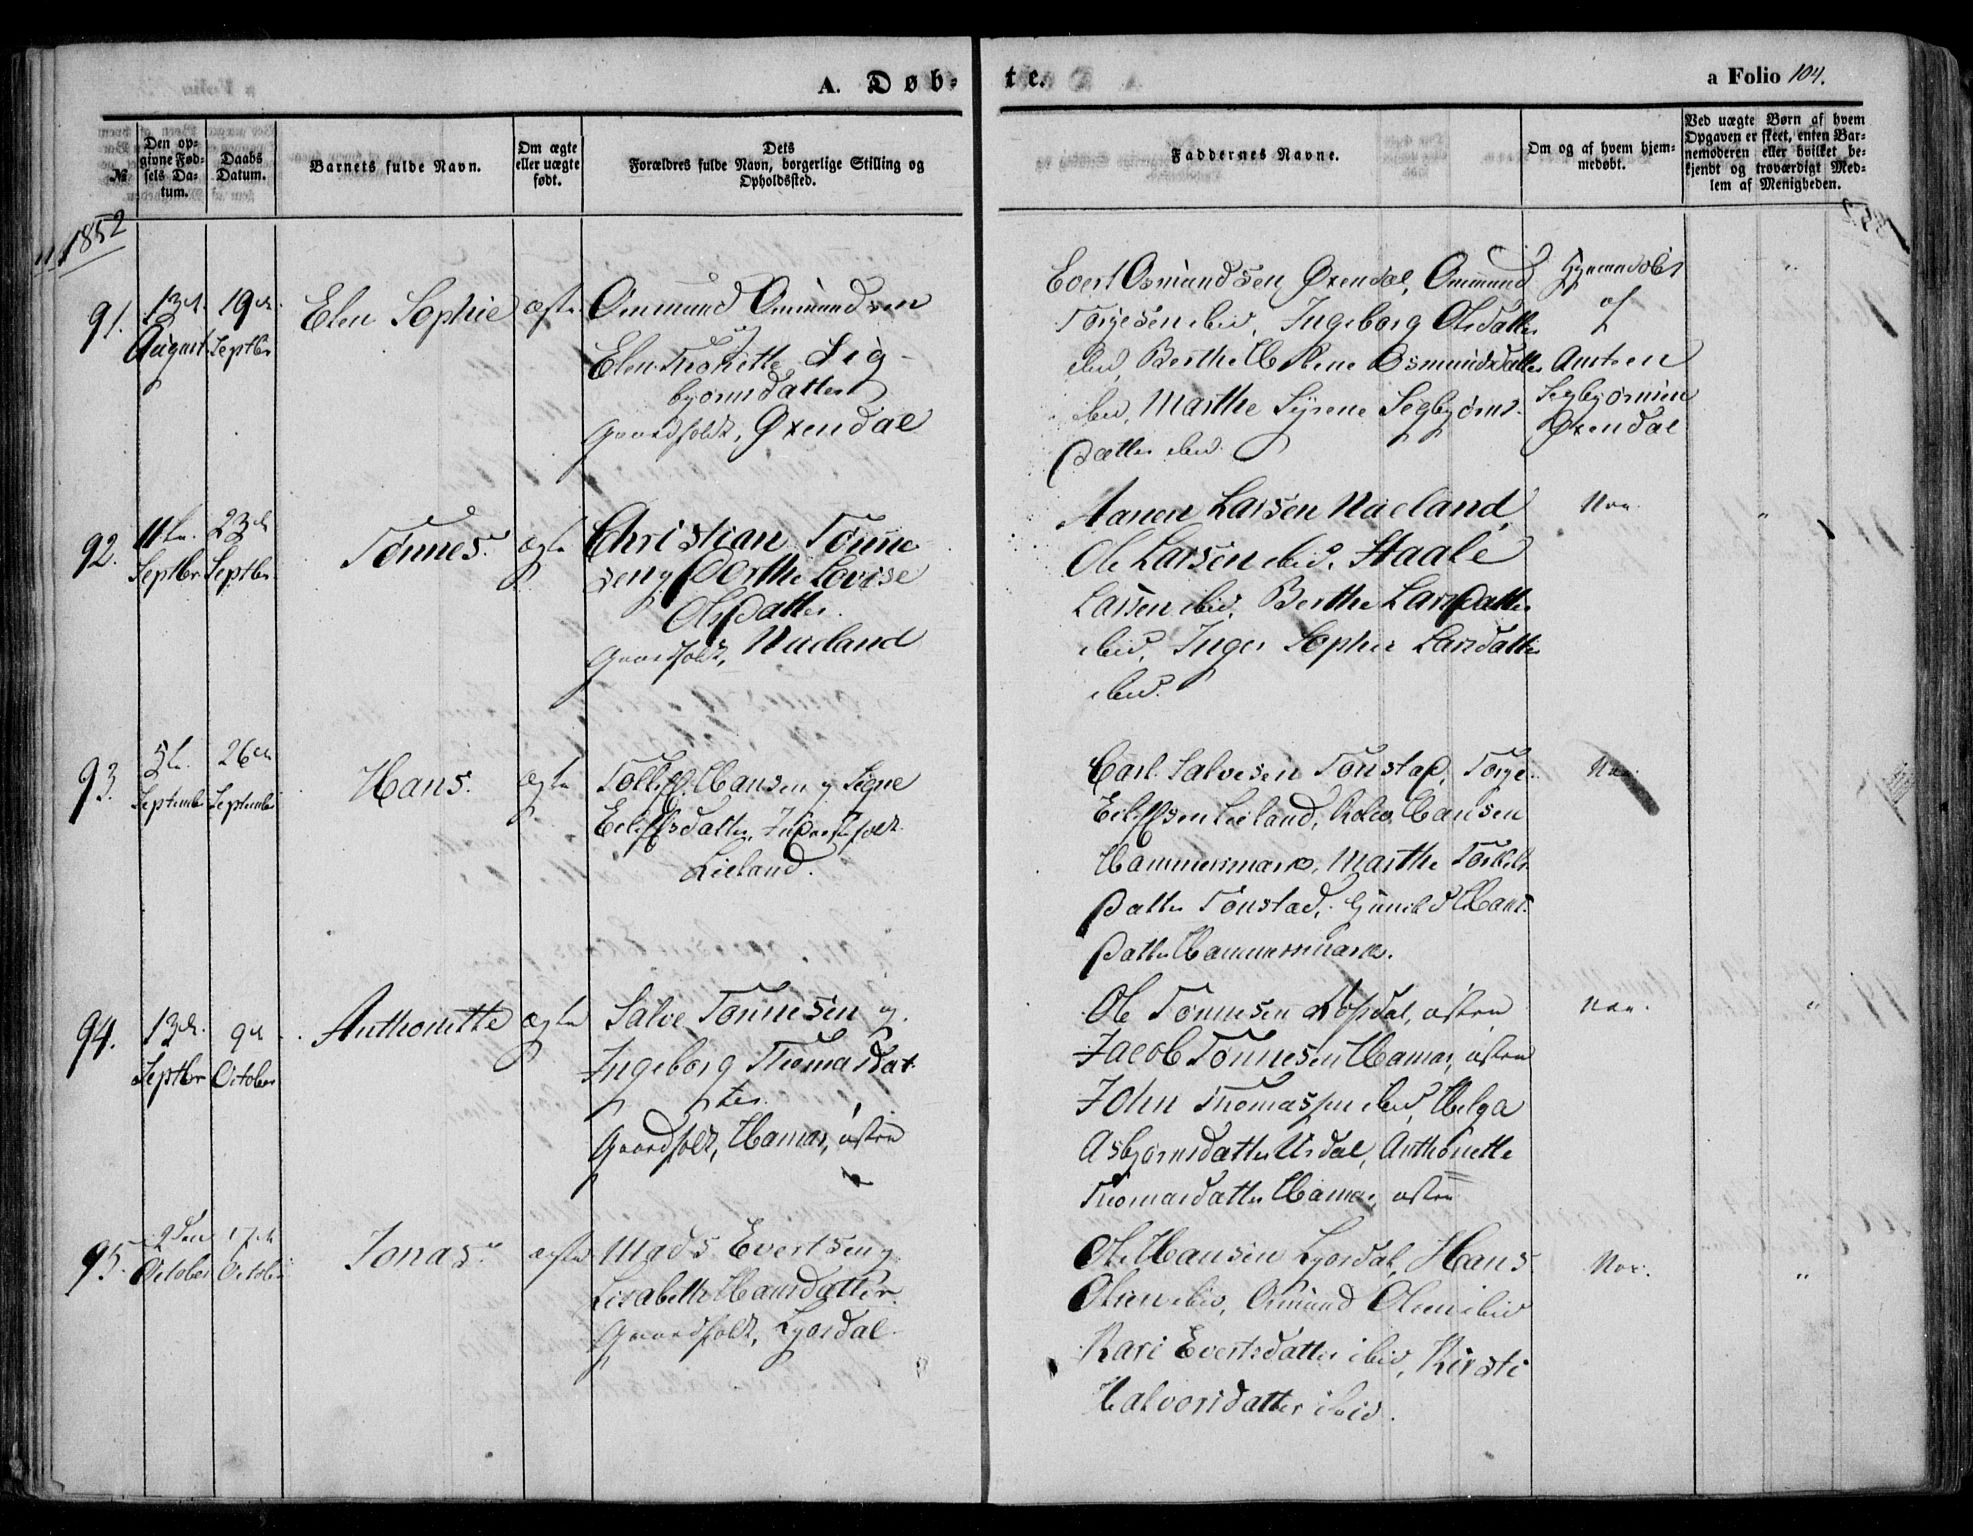 A. Døb-
te.
a Folio 104.
№
Den op-
givne Fød-
sels Da-
tum.
Daabs
Datum.
Barnets fulde Navn.
Om ægte
eller uægte
født.
Dets
Forældres fulde Navn, borgerlige Stilling og
Opholdssted.
Faddernes Navne.
Om og af hvem hjem-
medøbt.
Ved uægte Børn af hvem
Opgaven er skeet, enten Bar-
nemoderen eller hvilket be-
kjendt og troværdigt Med-
lem af Menigheden.
1852
91.
13de
August
19de
Septbr
Elen Sophie
ægte
Ommund Ommundsen
Elen Sig-
bjørnsdatter
Gaardfolk, Øxendal
Evert Osmundsen Øxendal, Ommund
Torjesen ibid, Ingeborg Olsdatter
ibid, Berthe Helene Osmundsdatter
ibid, Marthe Syrene Segbjørns-
datter ibid.
Hjemmedøbt
af
Austen
Segbjørnsen
Øxendal
92.
11te
Septbr
23de
Septbr
Tønnes.
ægte
Christian Tønne
sen og Dorthe Lovise
Olsdatter.
Gaardfolk, Naeland
Aanen Larsen Naeland,
Ole Larsen ibid, Staale
Larsen ibid, Berthe Larsdatter
ibid, Inger Sophie Larsdatter
ibid.
Nei.
"
93.
5te
September
26de
September
Hans.
ægte
Tollef Hansen og Signe
Eilefsdatter, Inderstfolk
Lieland.
Carl Salvesen Tonstad, Torje
Eilefsen Lieland, Hansen
Hammersmark, Marthe Torkels-
datter Tonstad, Gunild Hans-
datter Hammersmark.
Nei.
94.
13de
Septbr
9de
October
Anthonette
ægte
Salve Tønnesen og
Ingeborg Thomasdat
ter.
Gaardfolk, Hamar, østre
Ole Tønnesen østre
Jacob Tønnesen Hamar, østre
John Thomassen ibid, Helga
Asbjørnsdatter Urdal, Anthonette
Thomasdatter Hamar, østre
Nei.
"
95.
2den
October
17de
October
Jonas.
ægte
Mads Evertsen og
Lisabeth Hansdatter.
Gaardfolk, Lyordal.
Ole Hansen Lyordal, Hans
Olsen ibid, Osmund Olsen ibid
Kari Evertsdatter ibid, Kirsti
Halvorsdatter ibid.
Nei.
"